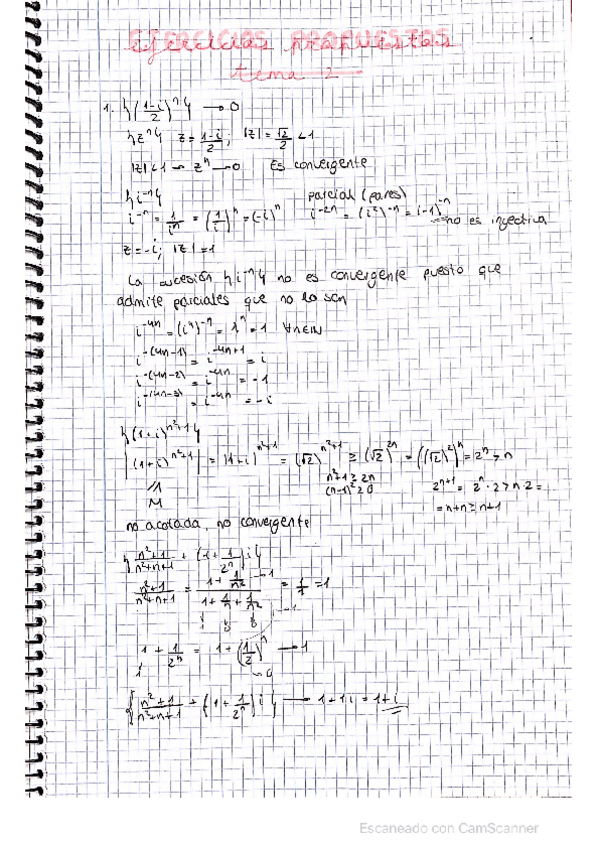 EJERCICIOS PROPUESTOS
tema 2
1. {((1-i)/2)^n} → 0
{z^n} z = (1-i)/2; |z| = √2/2 < 1
|z|<1 → z^n → 0 Es convergente
{i^-n} parcial (pares)
i^-n = 1/i^n = (1/i)^n = (-i)^n i^-2n = (i²)^-n = (-1)^-n no es inyectiva
z = -i; |z| = 1
La sucesión {i^-n} no es convergente puesto que
admite parciales que no lo son
i^-4n = (i^4)^-n = 1^n = 1 ∀n∈ℕ
i^-(4n-1) = i^-4n+1 = i
i^-(4n-2) = i^-4n = -1
i^-(4n-3) = i^-4n = -i
{(1+i)^(n²+1)}
|(1+i)^(n²+1)| = |1+i|^(n²+1) = (√2)^(n²+1) ≥ (√2)^2n = ((√2)²)^n = 2^n > n
n²+1 ≥ 2n
(n-1)² ≥ 0
2^(n+1) = 2^n · 2 > n·2 =
= n+n ≥ n+1
M
no acotada, no convergente
{(n²+1)/(n²+n+1) + (1 + 1/2^n) i}
(n²+1)/(n²+n+1) = (1 + 1/n²)/(1 + 1/n + 1/n²) = 1/1 = 1
1 + 1/2^n = 1 + (1/2)^n → 1
→ 0
{(n²+1)/(n²+n+1) + (1 + 1/2^n) i} → 1 + 1i = 1+i
Escaneado con CamScanner